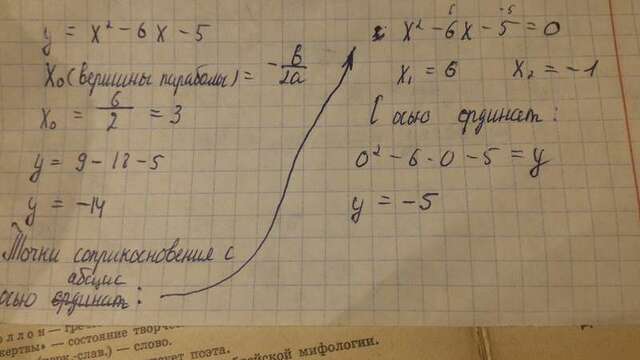 y = x² - 6x - 5
x₀ (вершины параболы) = -в/2а
x₀ = 6/2 = 3
y = 9 - 18 - 5
y = -14
Точки соприкосновения с
абцис
осью ординат:
x² - 6x - 5 = 0
x₁ = 6 x₂ = -1
С осью ординат:
0² - 6 · 0 - 5 = y
y = -5
оллон — гре
жертвы» — состояние творч
-слав.) — слово.
поэта.
ейской мифологии.